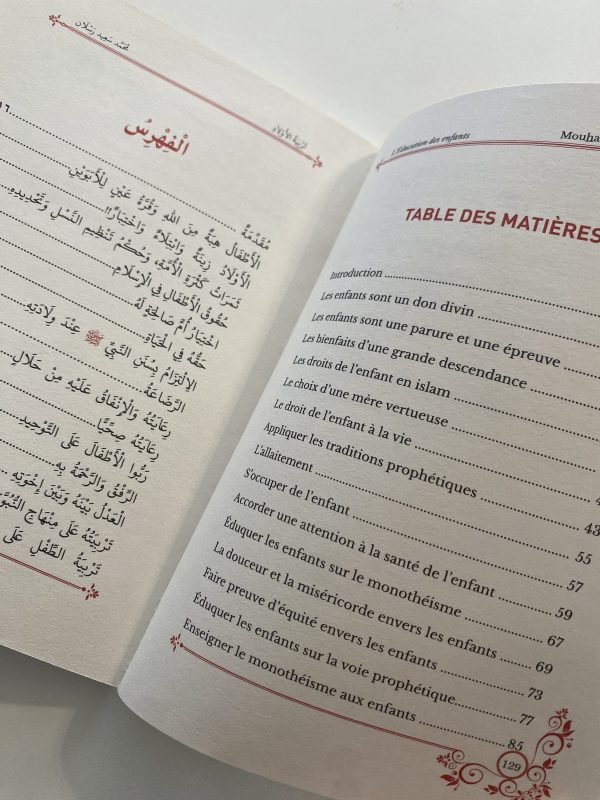 مُحَمَّد سَعِيد رَسْلَان
تَرْبِيَةُ الْأَوْلَادِ
الْفِهْرِسُ
مُقَدِّمَةٌ
الْأَطْفَالُ هِبَةٌ مِنَ اللهِ وَقُرَّةُ عَيْنٍ لِلْأَبَوَيْنِ
الْأَوْلَادُ زِينَةٌ وَابْتِلَاءٌ وَاخْتِبَارٌ!!
ثَمَرَاتُ كَثْرَةِ الْأُمَّةِ، وَحُكْمُ تَنْظِيمِ النَّسْلِ وَتَحْدِيدِهِ
حُقُوقُ الْأَطْفَالِ فِي الْإِسْلَامِ
اخْتِيَارُ أُمٍّ صَالِحَةٍ لَهُ
حَقُّهُ فِي الْحَيَاةِ
الِالْتِزَامُ بِسُنَنِ النَّبِيِّ ﷺ عِنْدَ وِلَادَتِهِ
الرَّضَاعَةُ
رِعَايَتُهُ وَالْإِنْفَاقُ عَلَيْهِ مِنْ حَلَالٍ
رِعَايَتُهُ صِحِّيًّا
رَبُّوا الْأَطْفَالَ عَلَى التَّوْحِيدِ
الرِّفْقُ وَالرَّحْمَةُ بِهِ
الْعَدْلُ بَيْنَهُ وَبَيْنَ إِخْوَتِهِ
تَرْبِيَتُهُ عَلَى مِنْهَاجِ
تَرْبِيَةُ الطِّفْلِ عَلَى
L'Éducation des enfants
Mouha
TABLE DES MATIÈRES
Introduction
Les enfants sont un don divin
Les enfants sont une parure et une épreuve
Les bienfaits d'une grande descendance
Les droits de l'enfant en islam
Le choix d'une mère vertueuse
Le droit de l'enfant à la vie
Appliquer les traditions prophétiques
L'allaitement 43
S'occuper de l'enfant 55
Accorder une attention à la santé de l'enfant 57
Éduquer les enfants sur le monothéisme 59
La douceur et la miséricorde envers les enfants 67
Faire preuve d'équité envers les enfants 69
Éduquer les enfants sur la voie prophétique 73
Enseigner le monothéisme aux enfants 77
85
129